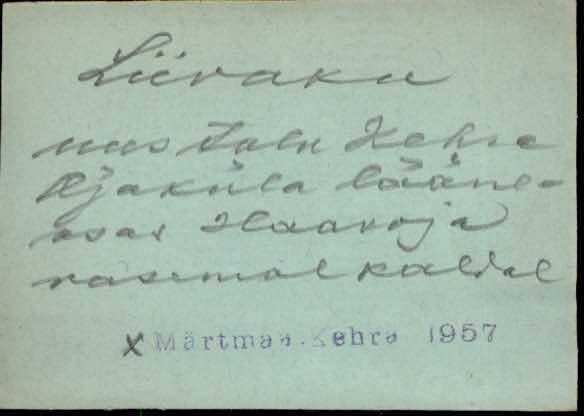 Liivaku
uus talu Kehra
Ojaküla lääne-
osas Haavoja
vasemal kaldal
x Märtmaa.Kehra 1957